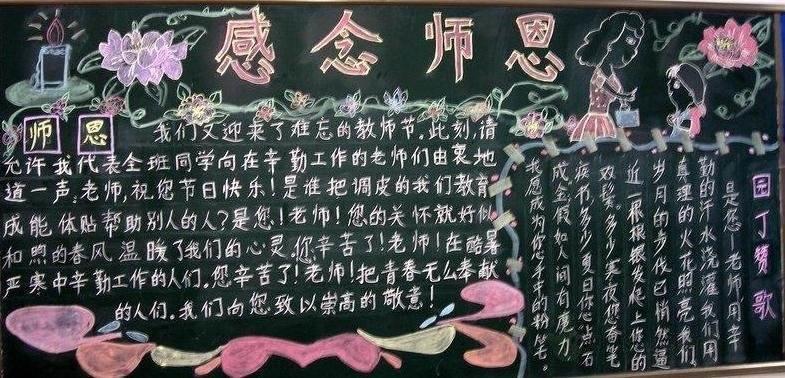 感念师恩
师恩
我们又迎来了难忘的教师节。此刻,请
允许我代表全班同学向在辛勤工作的老师们由衷地
道一声,老师,祝您节日快乐!是谁把调皮的我们教育
成能体贴帮助别人的人?是您!老师!您的关怀就好似
和煦的春风温暖了我们的心灵。您辛苦了!老师!在酷暑
严寒中辛勤工作的人们。您辛苦了!老师!把青春无么奉献
的人们。我们向您致以崇高的敬意!
园丁赞歌
是您—老师用辛
勤的汗水浇灌我们用
真理的火花照亮我们,
岁月的步伐已悄然逼
近一根根银发爬上您的
双鬓。多少寒夜您备笔
疾书,多少夏日您点石
成金假如人间有魔力
我愿成为您手中的粉笔。